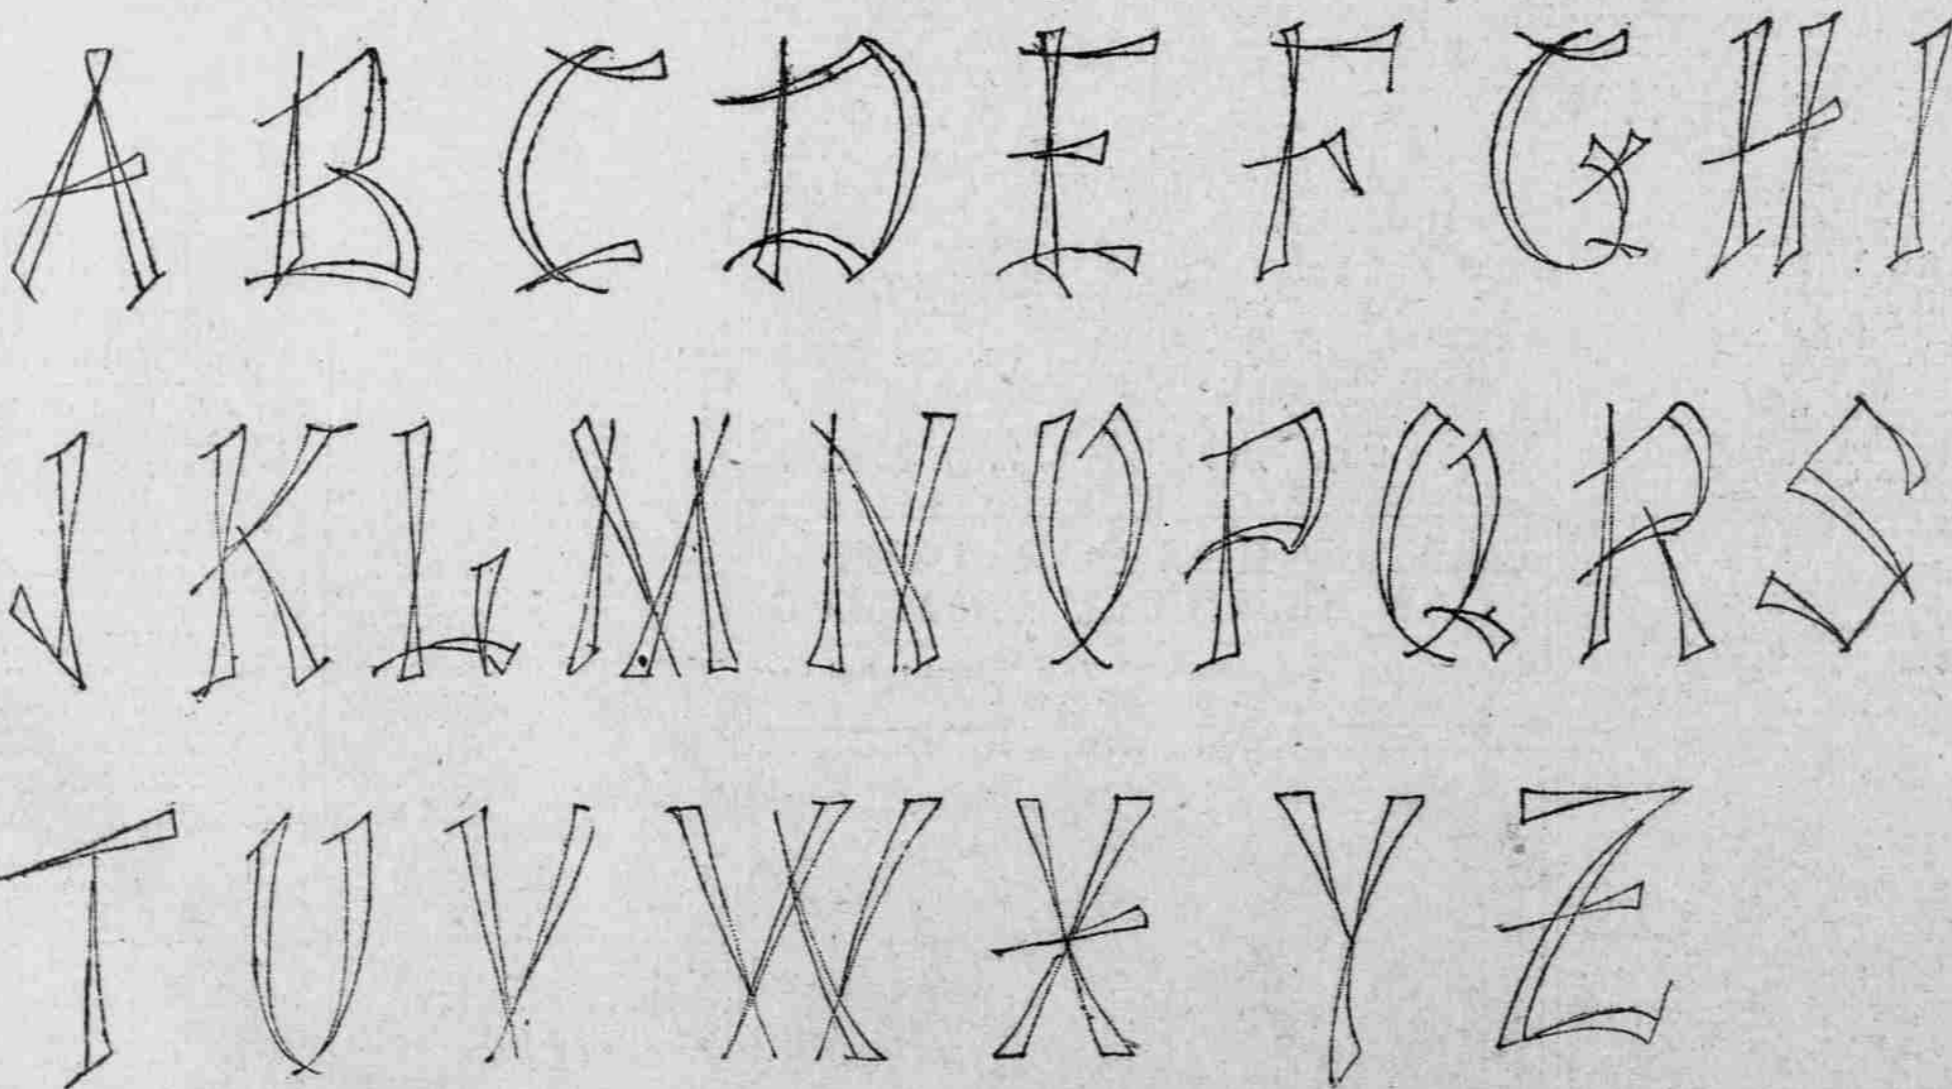 A B C D E F G H I
J K L M N O P Q R S
T U V W X Y Z